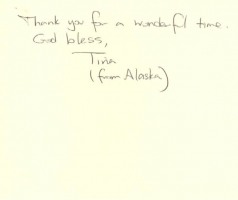 Thank you for a wonderful time.
God bless,
Tina
(from Alaska)